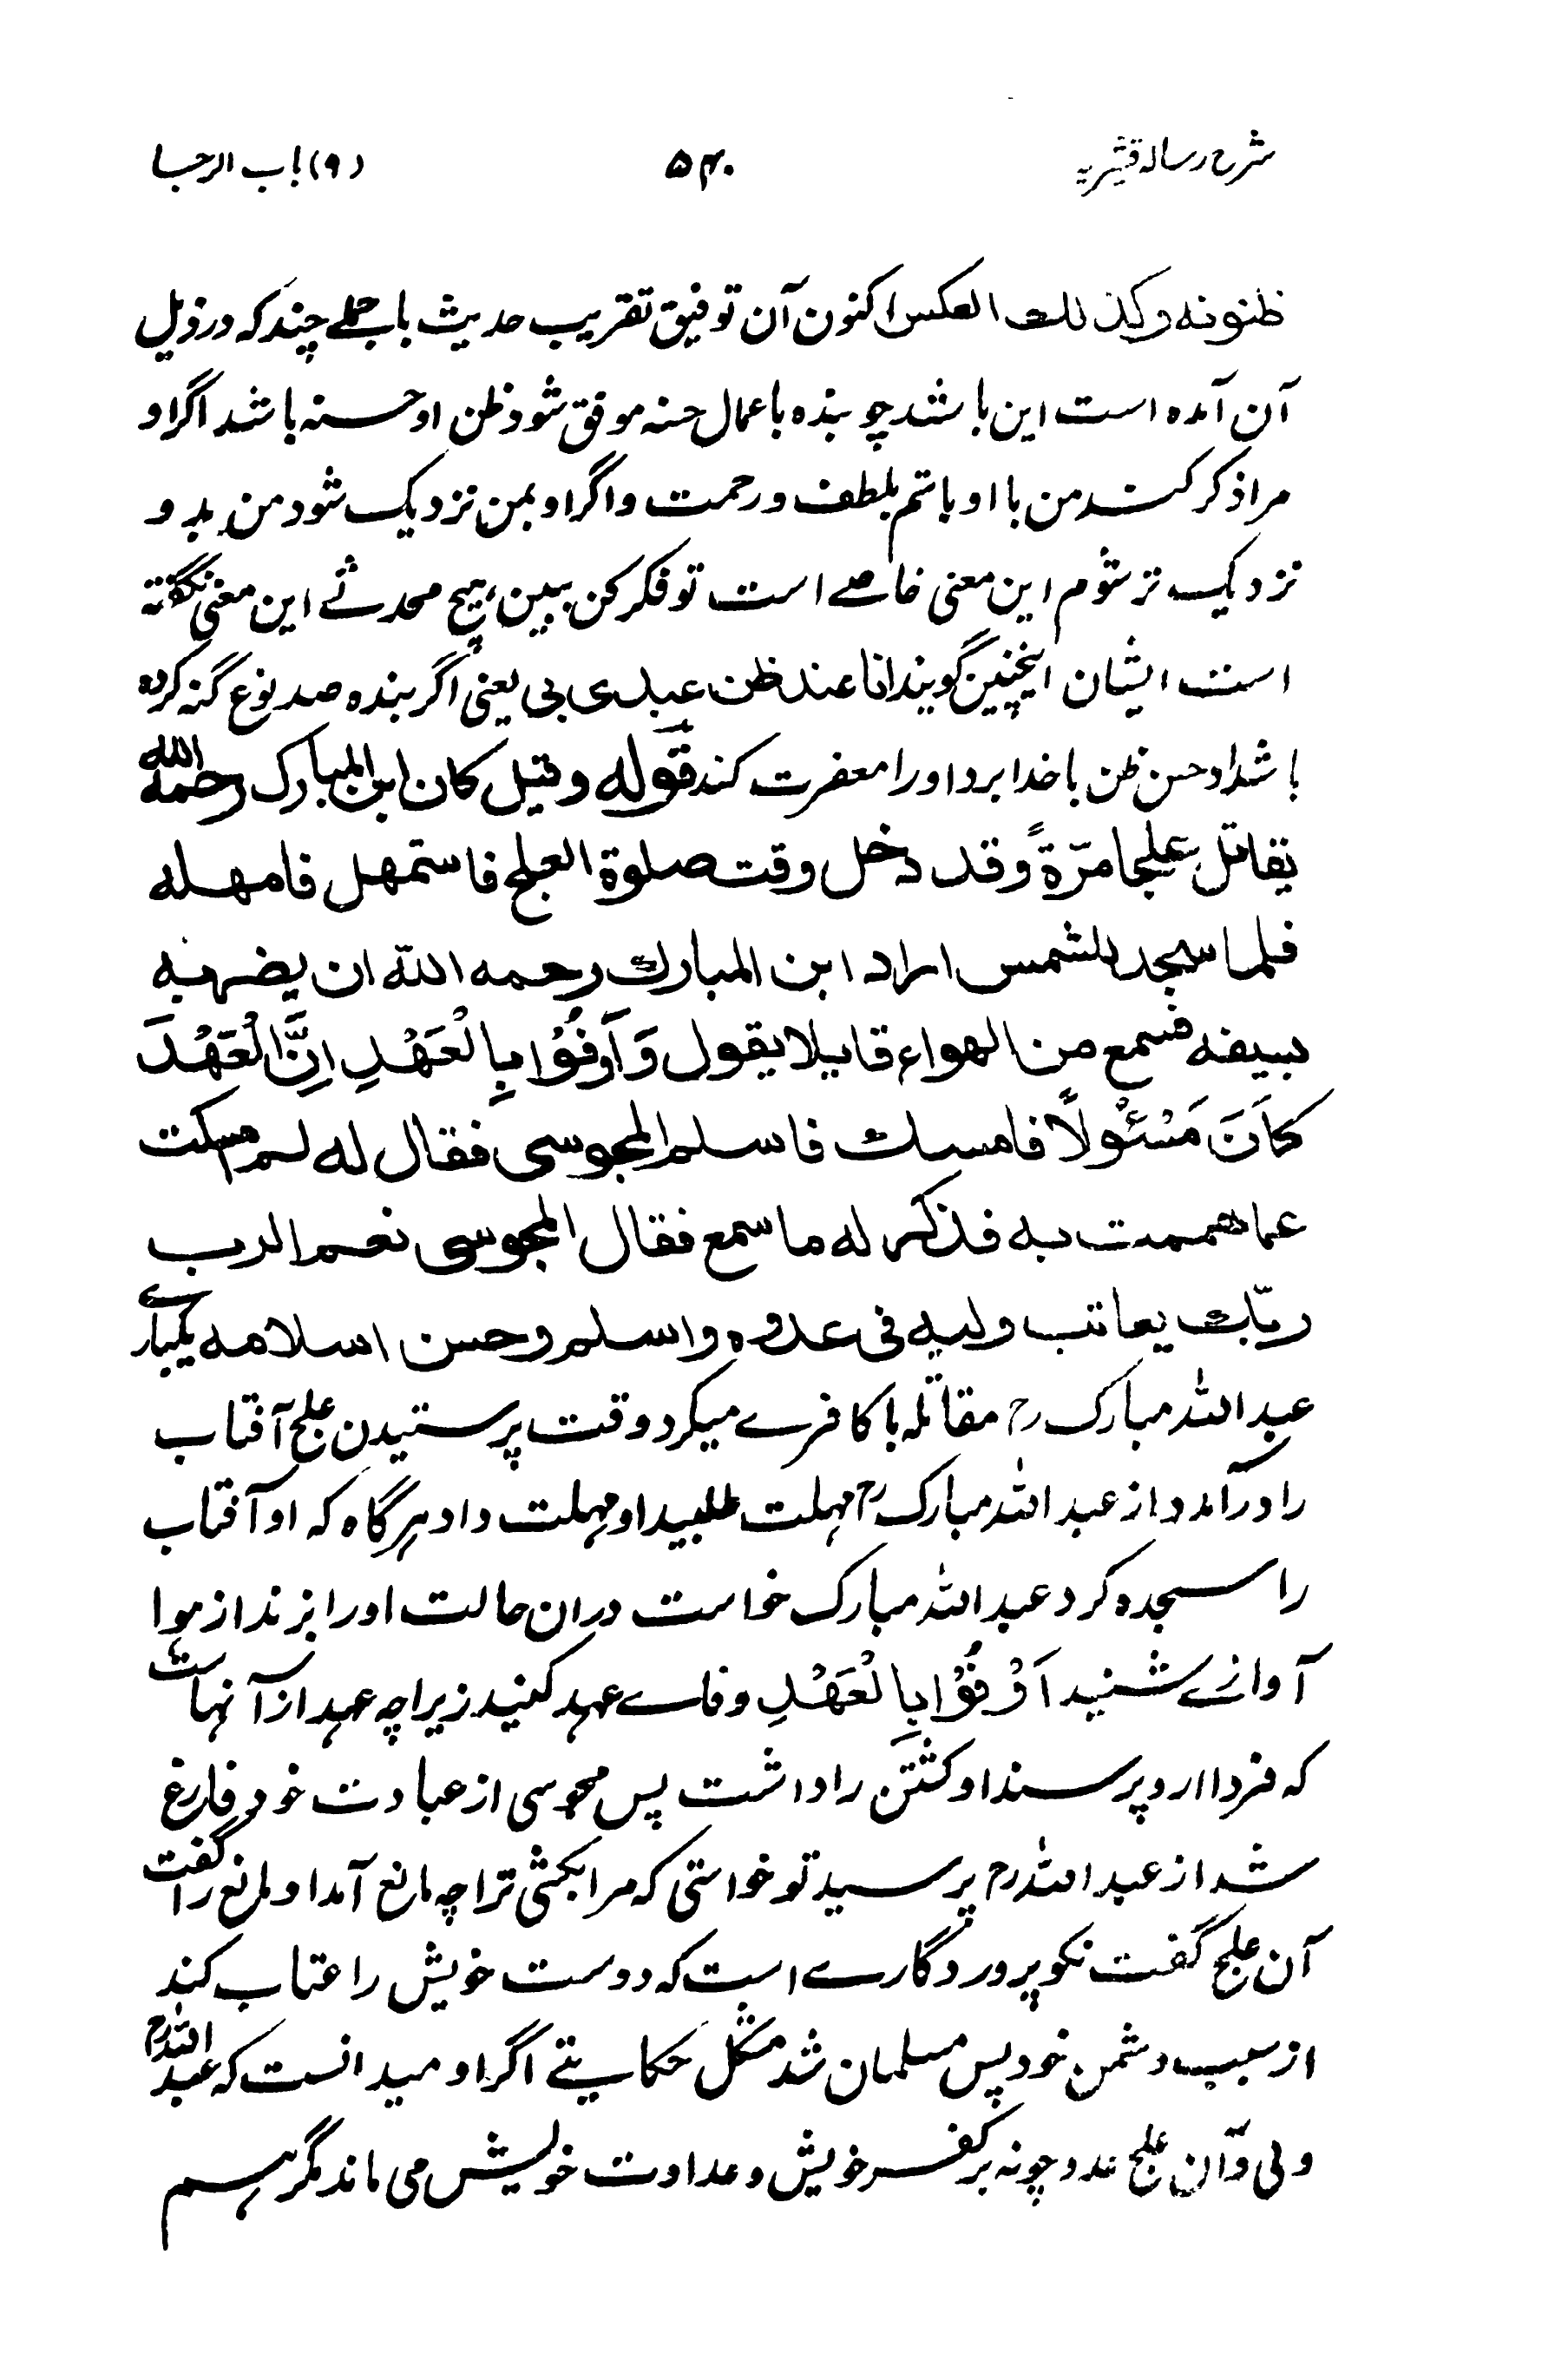 شرح رسالہ قشیریہ ۵۴۰ (۹) باب الرجا
ظنونه وکذلك العکس اکنون آن توفیق تقریب حدیث باجملے چند که در ذیل
آن آمده است این باشد چو بنده باعمال حسنه موفق شود ظن او حسنه باشد اگر او
مرا ذکر کند من با او باشم بلطف و رحمت و اگر او بمن نزدیک شود من بدو
نزدیک تر شوم این معنی خاصے است تو فکر کن ببین ہیچ محدثے این معنی نگفته
است ایشان اینچنین گویند انا عند ظن عبدی بی یعنی اگر بنده صد نوع گنه کرده
باشد او حسن ظن باخدا برد او را مغفرت کند قوله وقیل کان ابن المبارک رحمه الله
یقاتل علجا مرّةً وقد دخل وقت صلوة العلج فاستمهل فامهله
فلما سجد للشمس اراد ابن المبارك رحمه الله ان یضربه
بسیفه فسمع من الهواء قایلا یقول وَأَوْفُوْا بِالْعَهْدِ اِنَّ الْعَهْدَ
کَانَ مَسْئُولًا فامسك فاسلم المجوسی فقال له لم امسکت
عما هممت به فذکر له ما سمع فقال المجوسی نعم الرب
ربّك یعاتب ولیه فی عدوه واسلم وحسن اسلامه یکبارے
عبد الله مبارک رح مقاتله با کافرے میکرد وقت پرستیدن علج آفتاب
را درآمد و از عبد الله مبارک رح مہلت طلبید او مہلت داد ہرگاه که او آفتاب
را سجده کرد عبد الله مبارک خواست دران حالت او را بزند از ہوا
آوازے شنید اَوْفُوْا بِالْعَهْدِ وفاے عہد کنید زیراچه عہد از آنہاست
که فردا ازو پرسند او کشتن را داشت پس مجوسی از عبادت خود فارغ
شد از عبد الله رح پرسید تو خواستی که مرا بکشی ترا چه مانع آمد او مانع را گفت
آن علج گفت نکو پروردگارے است که دوست خویش را عتاب کند
از سبب دشمن خود پس مسلمان شد مشکل حکایتے اگر او میدانست که عبد الله رح
ولی و آن علج عدو چونه بر کفر خویش و عداوت خویش می ماند مگر ہم